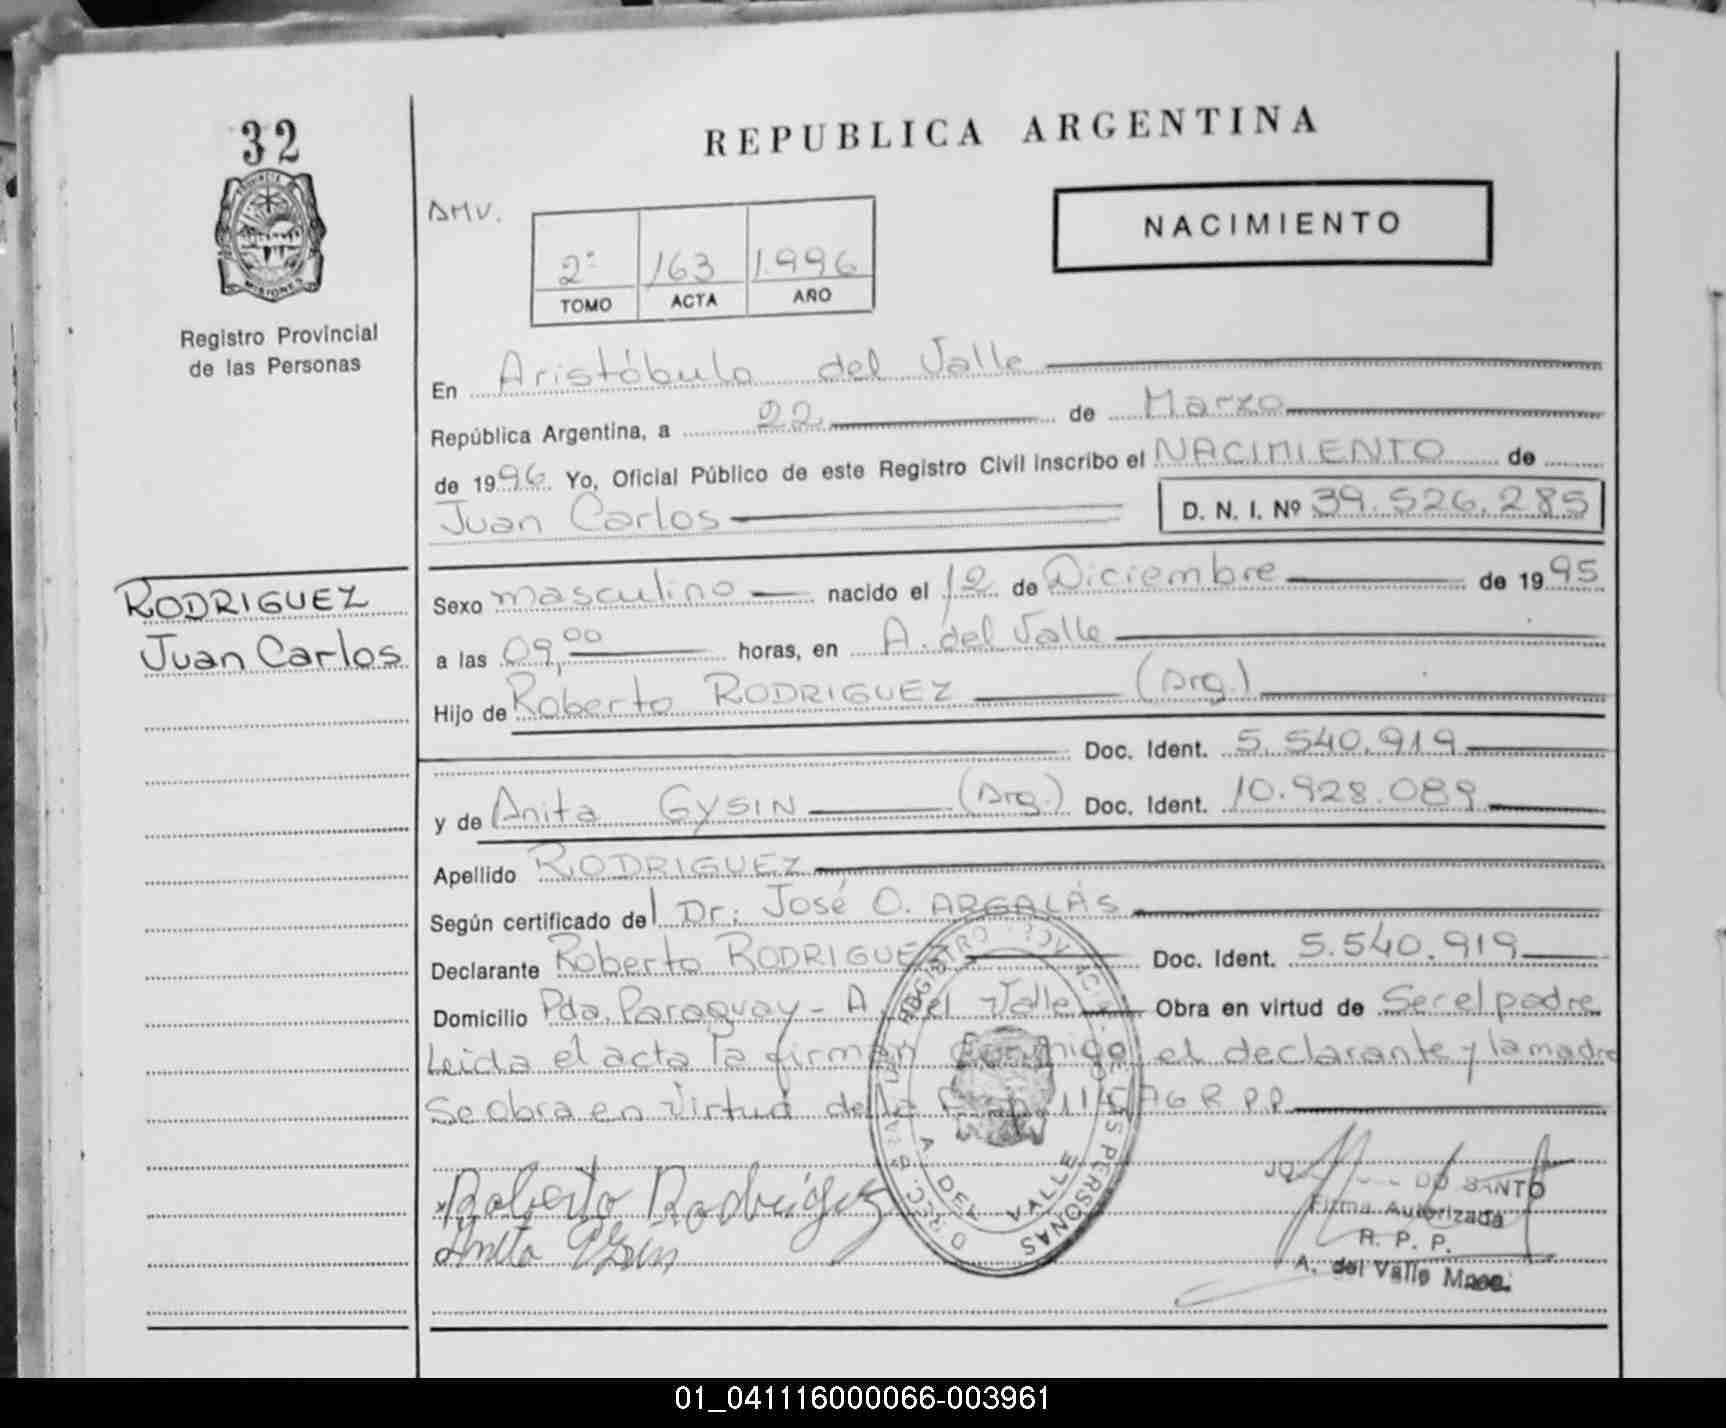 32
PROVINCIA DE
MISIONES
Registro Provincial
de las Personas
RODRIGUEZ
Juan Carlos
REPUBLICA ARGENTINA
AMV.
NACIMIENTO
2º 163 1.996
TOMO ACTA AÑO
En Aristóbulo del Valle
República Argentina, a 22 de Marzo
de 1996. Yo, Oficial Público de este Registro Civil inscribo el NACIMIENTO de
Juan Carlos D. N. I. Nº 39.526.285
Sexo masculino nacido el 12 de Diciembre de 1995
a las 09,00 horas, en A. del Valle
Hijo de Roberto RODRIGUEZ (Arg.)
Doc. Ident. 5.540.919
y de Anita GYSIN (Arg.) Doc. Ident. 10.928.089
Apellido RODRIGUEZ
Según certificado del Dr: José O. ARGALÁS
Declarante Roberto RODRIGUEZ Doc. Ident. 5.540.919
Domicilio Pda. Paraguay - A. del Valle Obra en virtud de Ser el padre
Leida el acta la firman conmigo el declarante y la madre
Se obra en virtud de la R.P.P.
Roberto Rodriguez
Anita Gysin
DO SANTO
Firma Autorizada
R. P. P.
A. del Valle Mnes.
A. DEL VALLE
PERSONAS
01_041116000066-003961